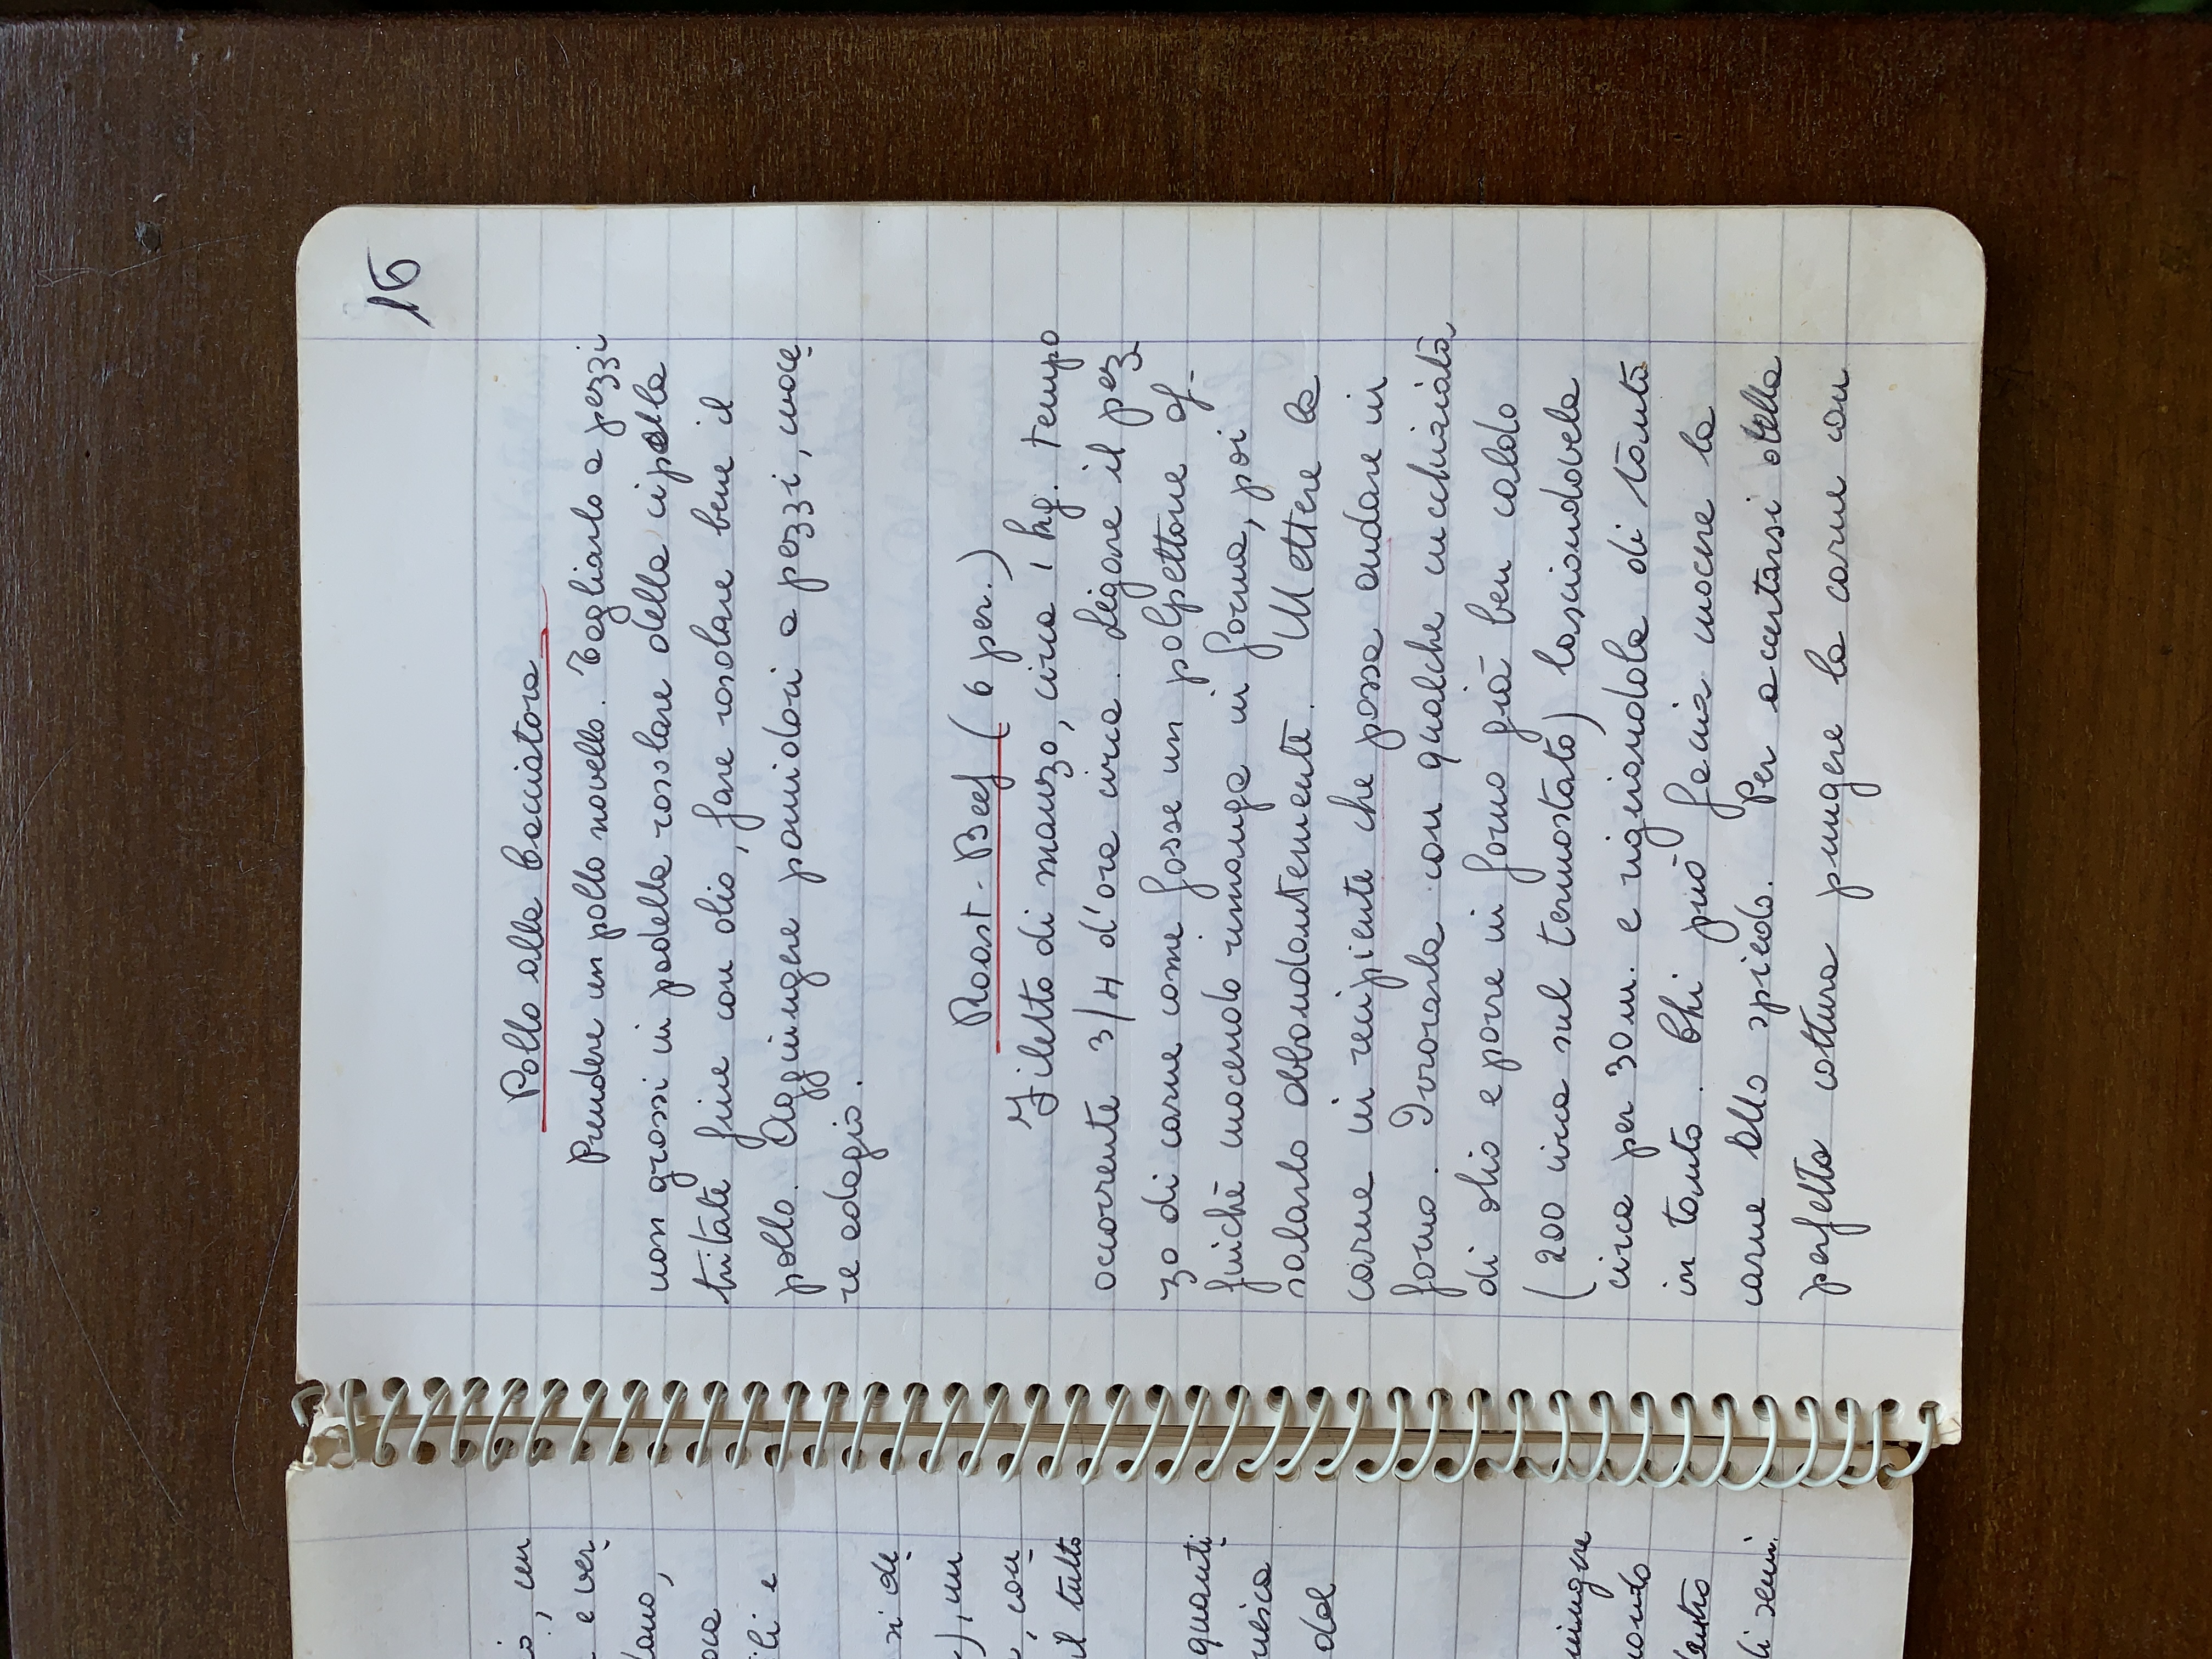 io, un
e ver
dano,
oca
ili e
si de
), un
, con
il tutto
quanti
resca
dal
iungere
ando
dentro
di semi.
16
Pollo alla Cacciatora
Prendere un pollo novello. Tagliarlo a pezzi
non grossi in padella rosolare della cipolla
tritata fine con olio, fare rosolare bene il
pollo. Aggiungere pomidori a pezzi, cuoce
re adagio.
Roast-Beef (6 per.)
Filetto di manzo, circa 1 kg. tempo
occorrente 3/4 d'ora circa. Legare il pez
zo di carne come fosse un polpettone af-
finchè cuocendo rimanga in forma, poi
salarlo abbondantemente. Mettere la
carne in recipiente che possa andare in
forno. Irrorarla con qualche cucchiaiata
di olio e porre in forno già ben caldo
(200 circa sul termostato) lasciandovela
circa per 30 m. e rigirandola di tanto
in tanto. Chi può faccia cuocere la
carne allo spiedo. Per accertarsi della
perfetta cottura pungere la carne con